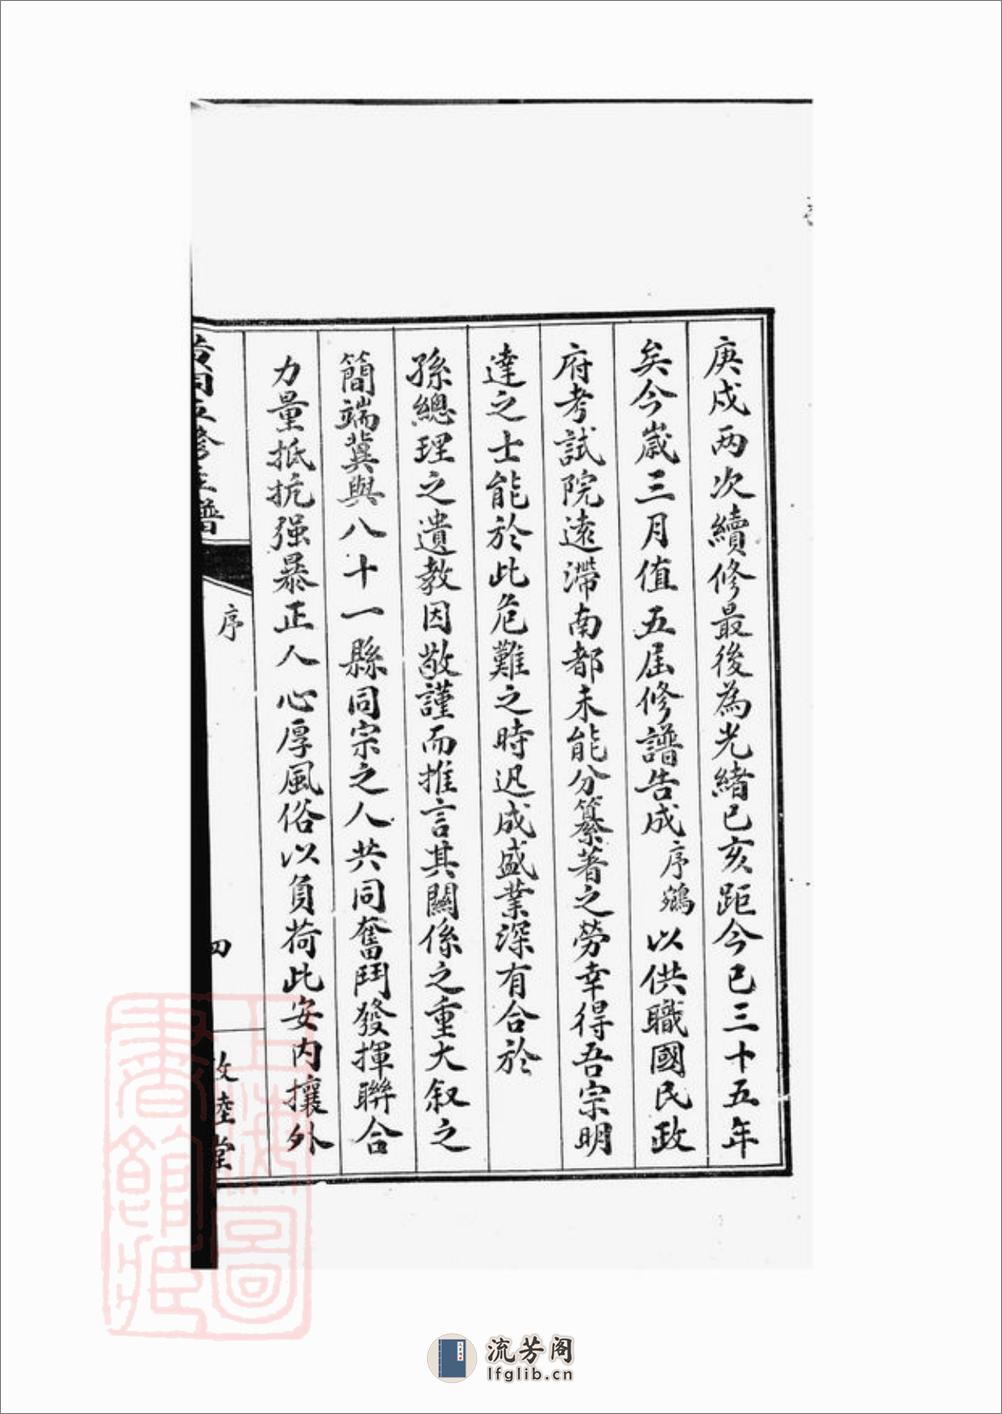 庚戌两次續修最後為光緒己亥距今已三十五年
矣今歲三月值五届修譜告成序鵷以供職國民政
府考試院遠滯南都未能分纂著之勞幸得吾宗明
達之士能於此危難之時迅成盛業深有合於
孫總理之遺教因敬謹而推言其關係之重大叙之
簡端冀與八十一縣同宗之人共同奮鬥發揮聯合
力量抵抗强暴正人心厚風俗以負荷此安内攘外
序
四
敦睦堂
上海圖書館藏
流芳阁
lfglib.cn